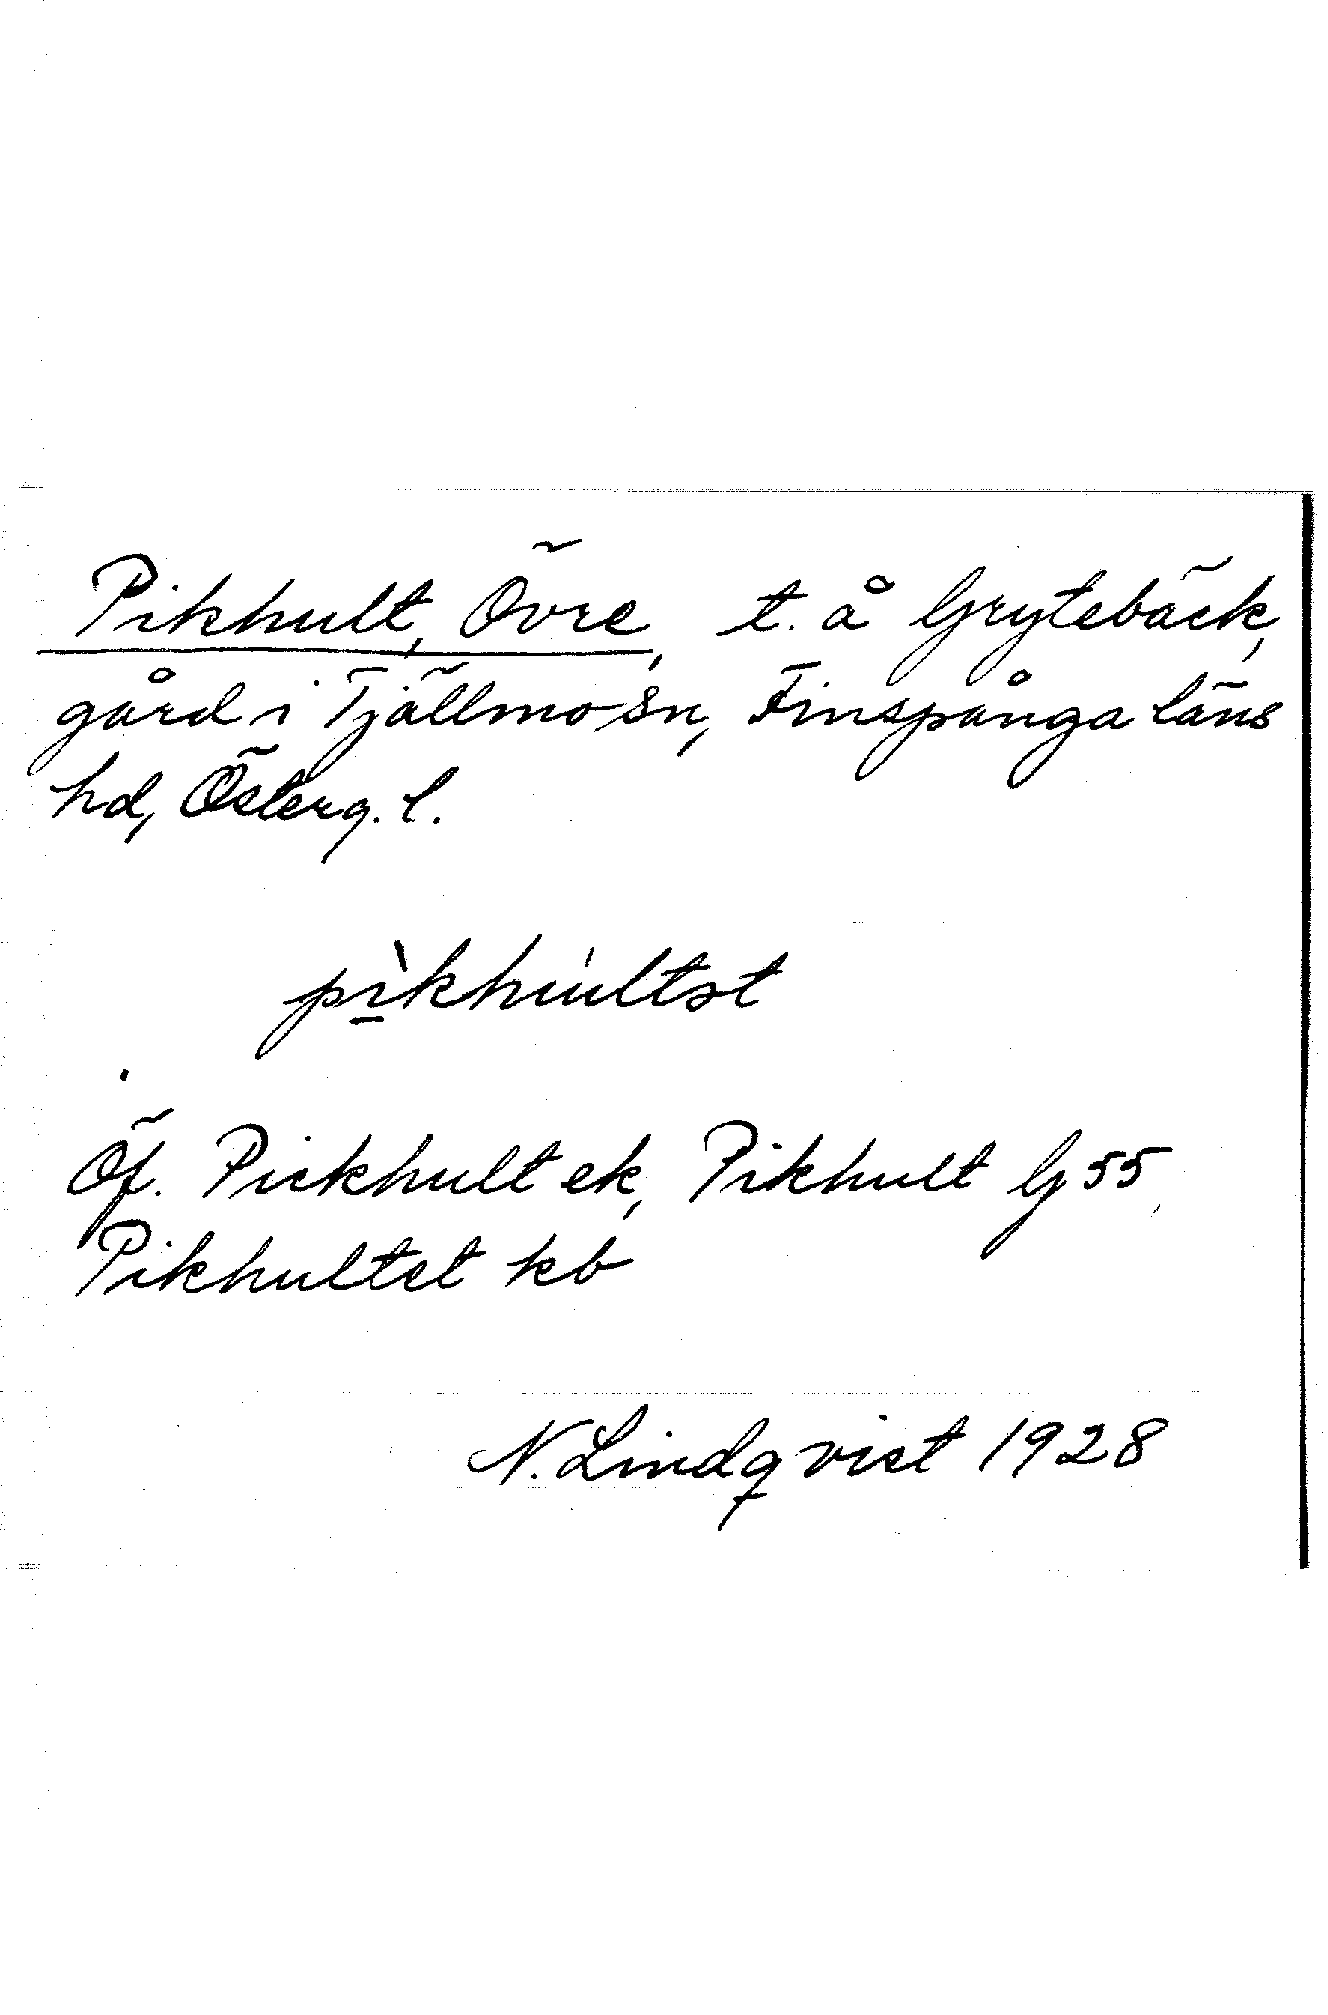 Pikhult, Övre, t. å Grytebäck,
gård i Tjällmo sn, Finspånga läns
hd, Österg. l.
pìkhúltət
Öf. Pickhult ek, Pikhult G 55,
Pikhultet kb
N. Lindqvist 1928